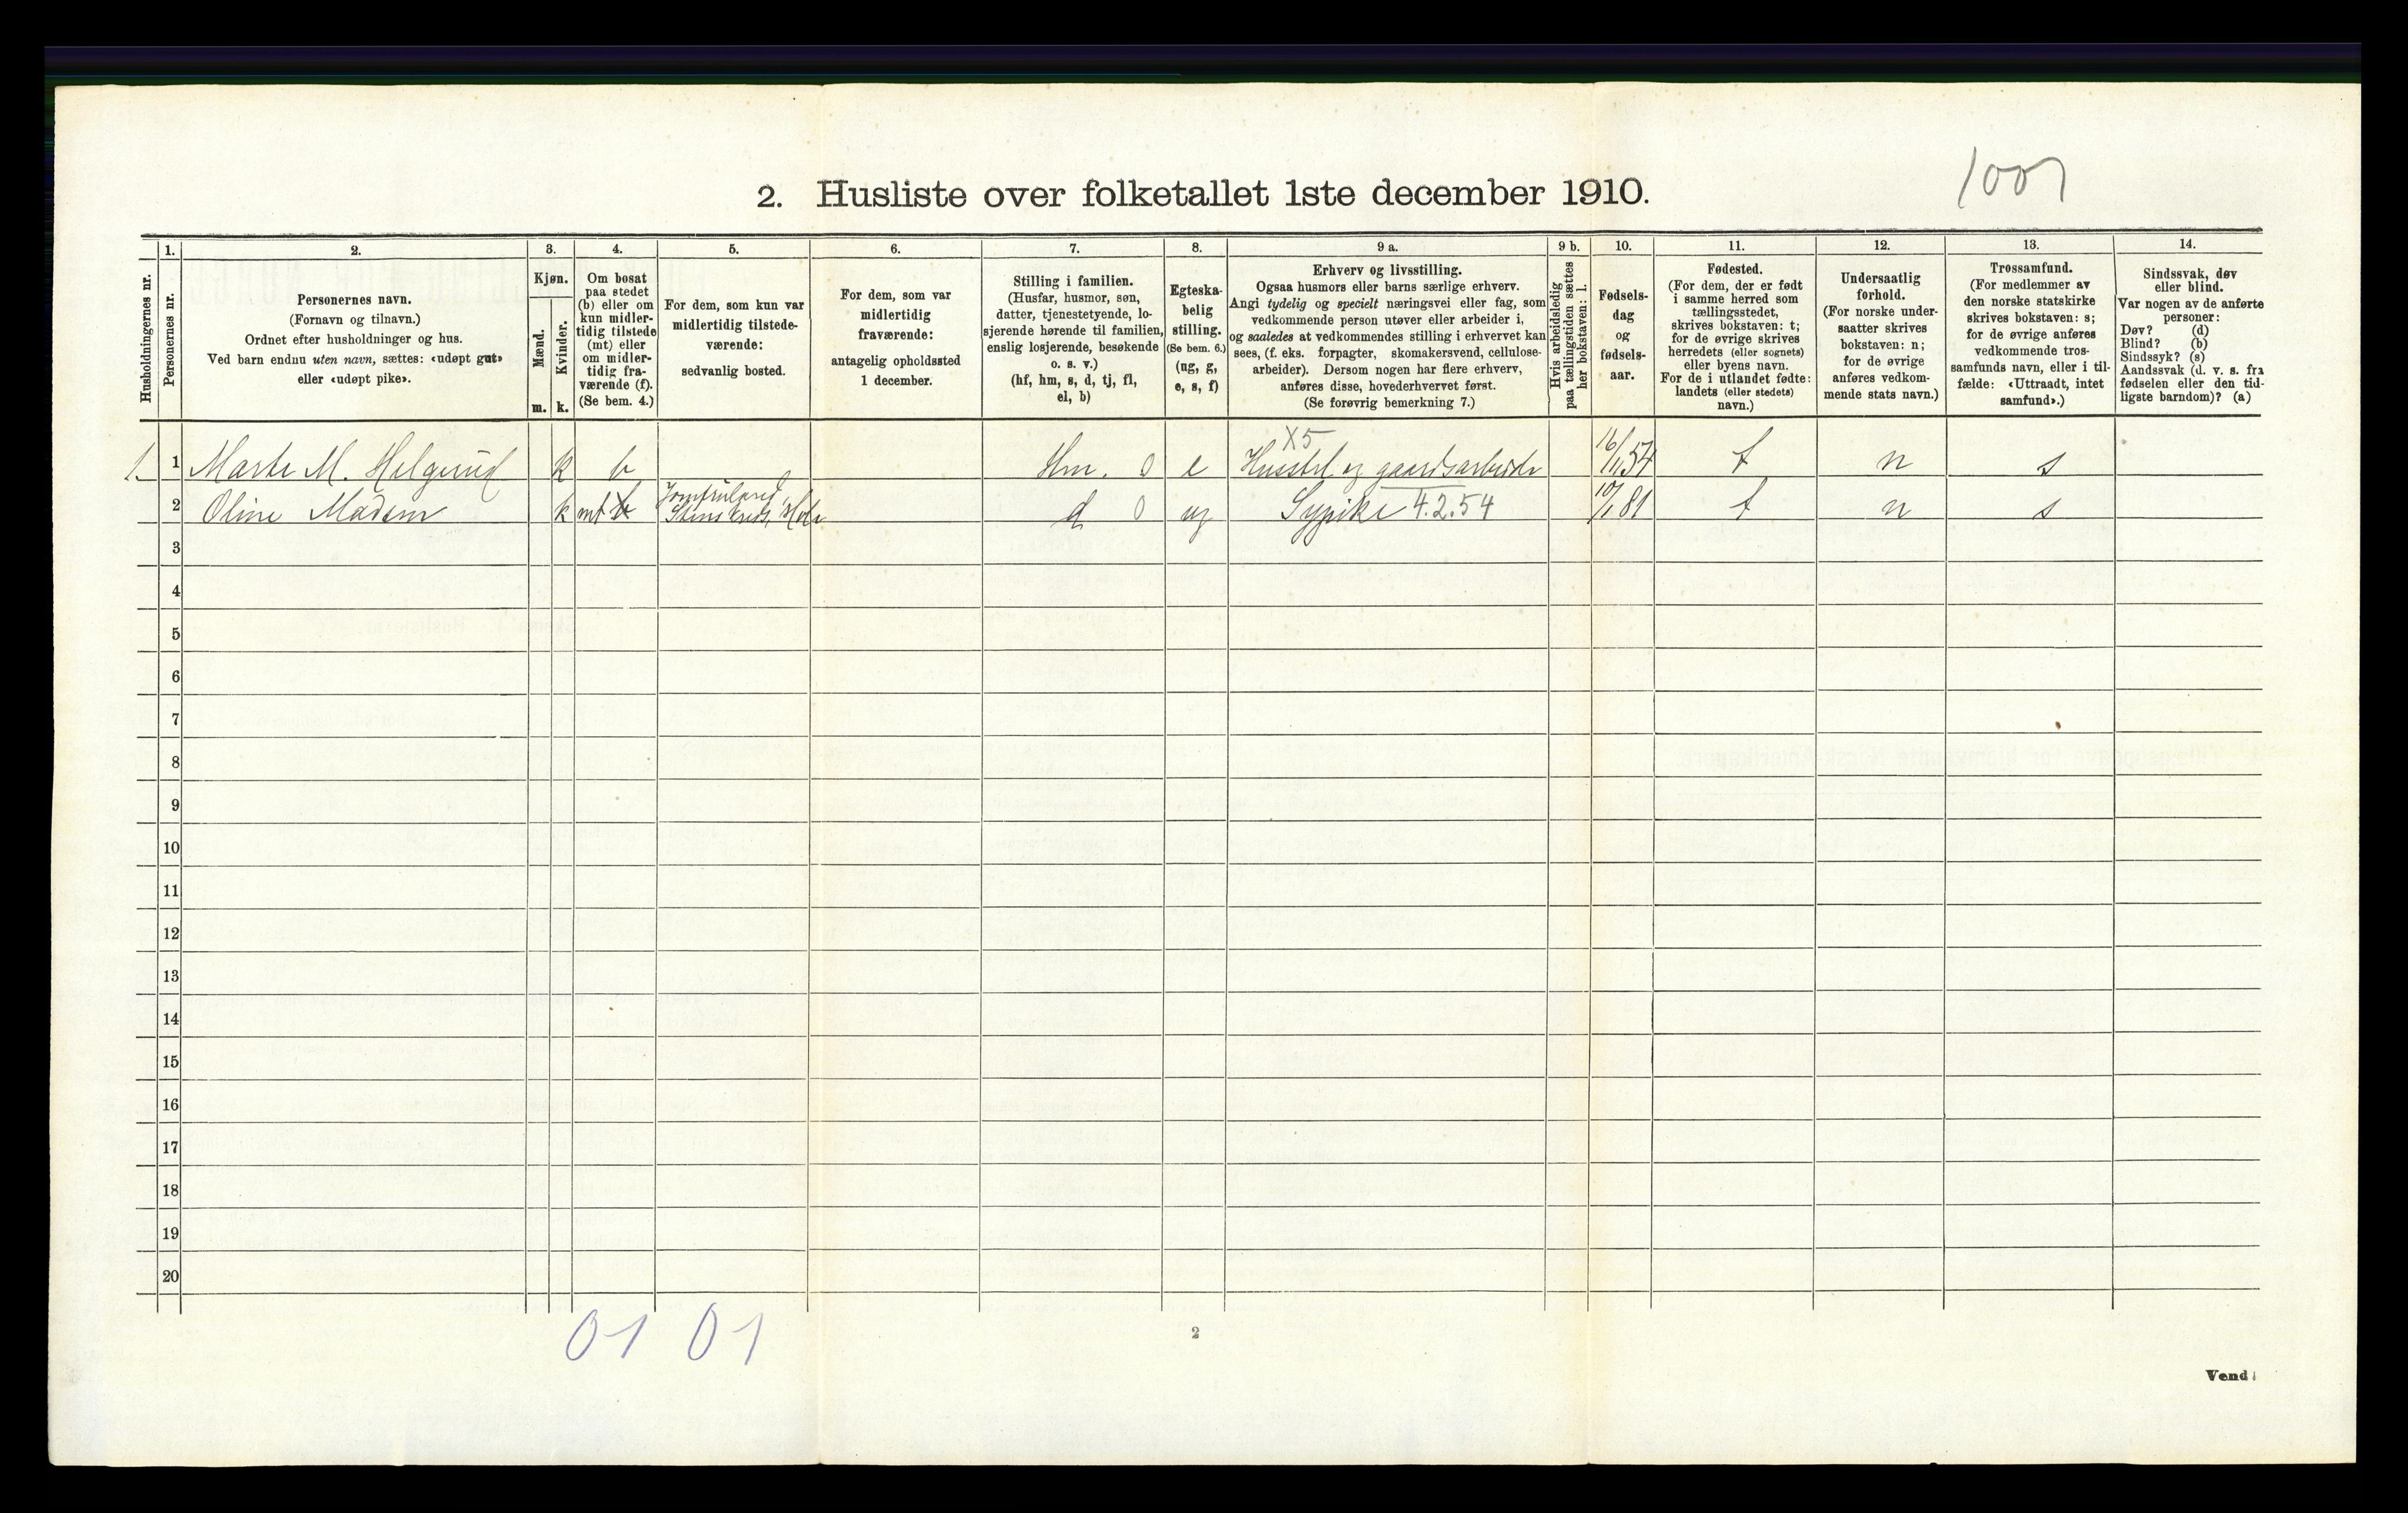 1001
2. Husliste over folketallet 1ste december 1910.
Husholdningernes nr.
1.
Personernes nr.
2.
Personernes navn.
(Fornavn og tilnavn.)
Ordnet efter husholdninger og hus.
Ved barn endnu uten navn, sættes: «udøpt gut»
eller «udøpt pike».
3.
Kjøn.
Mænd.
Kvinder.
m. k.
4.
Om bosat
paa stedet
(b) eller om
kun midler-
tidig tilstede
(mt) eller
om midler-
tidig fra-
værende (f).
(Se bem. 4.)
5.
For dem, som kun var
midlertidig tilstede-
værende:
sedvanlig bosted.
6.
For dem, som var
midlertidig
fraværende:
antagelig opholdssted
1 december.
7.
Stilling i familien.
(Husfar, husmor, søn,
datter, tjenestetyende, lo-
sjerende hørende til familien,
enslig losjerende, besøkende
o. s. v.)
(hf, hm, s, d, tj, fl,
el, b)
8.
Egteska-
belig
stilling.
(Se bem. 6.)
(ug, g,
e, s, f)
9 a.
Erhverv og livsstilling.
Ogsaa husmors eller barns særlige erhverv.
Angi tydelig og specielt næringsvei eller fag, som
vedkommende person utøver eller arbeider i,
og saaledes at vedkommendes stilling i erhvervet kan
sees, (f. eks. forpagter, skomakersvend, cellulose-
arbeider). Dersom nogen har flere erhverv,
anføres disse, hovederhvervet først.
(Se forøvrig bemerkning 7.)
9 b.
Hvis arbeidsledig
paa tællingstiden sættes
her bokstaven: l.
10.
Fødsels-
dag
og
fødsels-
aar.
11.
Fødested.
(For dem, der er født
i samme herred som
tællingsstedet,
skrives bokstaven: t;
for de øvrige skrives
herredets (eller sognets)
eller byens navn.
For de i utlandet fødte:
landets (eller stedets)
navn.)
12.
Undersaatlig
forhold.
(For norske under-
saatter skrives
bokstaven: n;
for de øvrige
anføres vedkom-
mende stats navn.)
13.
Trossamfund.
(For medlemmer av
den norske statskirke
skrives bokstaven: s;
for de øvrige anføres
vedkommende tros-
samfunds navn, eller i til-
fælde: «Uttraadt, intet
samfund».)
14.
Sindssvak, døv
eller blind.
Var nogen av de anførte
personer:
Døv? (d)
Blind? (b)
Sindssyk? (s)
Aandssvak (d. v. s. fra
fødselen eller den tid-
ligste barndom)? (a)
1. 1 Marte M. Helgerud k b Hm. 0 e X5 Husstel og gaardsarbeide 16/11 57 t n s
2 Oline Madsen k mt b d 0 ug Sypike 4.2.54 10/1 81 t n s
3
4
5
6
7
8
9
10
11
12
13
14
15
16
17
18
19
20
01 01
2
Vend!